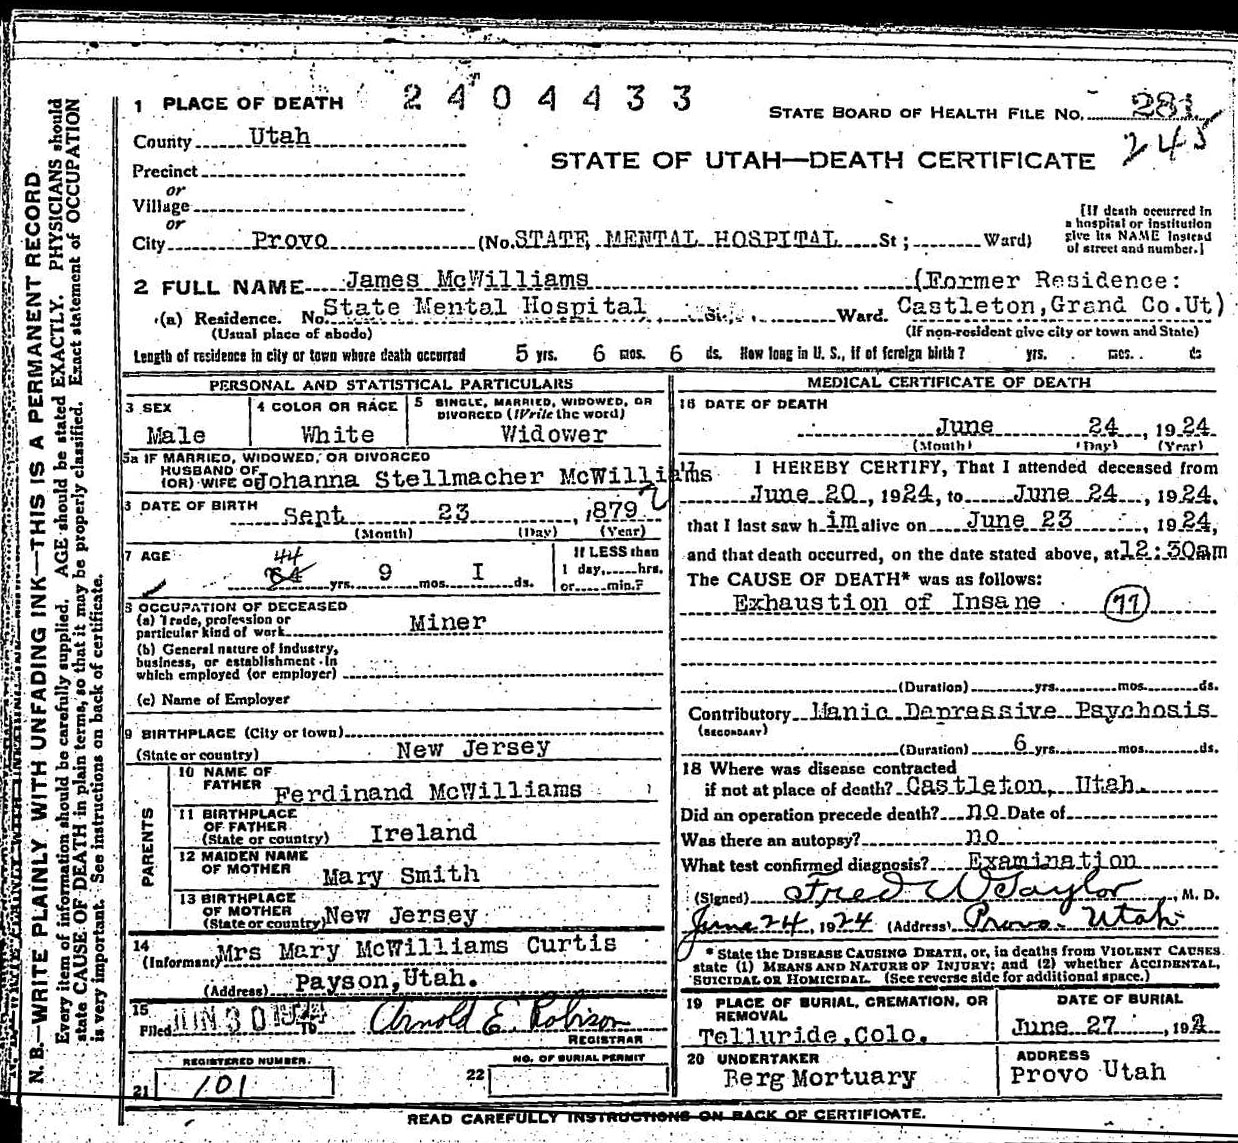 1 PLACE OF DEATH 2404433
STATE BOARD OF HEALTH FILE NO. 281
245
County Utah
STATE OF UTAH—DEATH CERTIFICATE
Precinct
or
Village
or
City Provo (No. STATE MENTAL HOSPITAL St; Ward)
[If death occurred in
a hospital or institution
give its NAME instead
of street and number.]
2 FULL NAME James McWilliams (Former Residence:
(a) Residence. No. State Mental Hospital St., Ward. Castleton,Grand Co.Ut)
(Usual place of abode) (If non-resident give city or town and State)
Length of residence in city or town where death occurred 5 yrs. 6 mos. 6 ds. How long in U. S., if of foreign birth? yrs. mos. ds
PERSONAL AND STATISTICAL PARTICULARS
3 SEX
Male
4 COLOR OR RACE
White
5 SINGLE, MARRIED, WIDOWED, OR
DIVORCED (Write the word)
Widower
5a IF MARRIED, WIDOWED, OR DIVORCED
HUSBAND OF
(OR) WIFE OF Johanna Stellmacher McWilliams
DATE OF BIRTH Sept 23 , 1879
(Month) (Day) (Year)
7 AGE 44
yrs. 9 mos. I ds.
If LESS than
1 day, hrs.
or min.?
8 OCCUPATION OF DECEASED
(a) Trade, profession or
particular kind of work Miner
(b) General nature of industry,
business, or establishment in
which employed (or employer)
(c) Name of Employer
9 BIRTHPLACE (City or town)
(State or country) New Jersey
PARENTS
10 NAME OF
FATHER Ferdinand McWilliams
11 BIRTHPLACE
OF FATHER
(State or country) Ireland
12 MAIDEN NAME
OF MOTHER Mary Smith
13 BIRTHPLACE
OF MOTHER
(State or country) New Jersey
14
(Informant) Mrs Mary McWilliams Curtis
(Address) Payson,Utah.
15
Filed JUN 30 1924 Arnold E. Robison
REGISTRAR
REGISTERED NUMBER.
21 101
NO. OF BURIAL PERMIT
22
MEDICAL CERTIFICATE OF DEATH
16 DATE OF DEATH
June 24 , 1924
(Month) (Day) (Year)
17 I HEREBY CERTIFY, That I attended deceased from
June 20 , 1924, to June 24 , 1924,
that I last saw h im alive on June 23 , 1924,
and that death occurred, on the date stated above, at 12:30am
The CAUSE OF DEATH* was as follows:
Exhaustion of Insane (77)
(Duration) yrs. mos. ds.
Contributory Manic Depressive Psychosis
(SECONDARY)
(Duration) 6 yrs. mos. ds.
18 Where was disease contracted
if not at place of death? Castleton, Utah.
Did an operation precede death? no Date of
Was there an autopsy? no
What test confirmed diagnosis? Examination
(Signed) Fred W Taylor, M. D.
June 24, 1924 (Address) Provo. Utah.
* State the DISEASE CAUSING DEATH, or, in deaths from VIOLENT CAUSES
state (1) MEANS AND NATURE OF INJURY; and (2) whether ACCIDENTAL,
SUICIDAL OR HOMICIDAL. (See reverse side for additional space.)
19 PLACE OF BURIAL, CREMATION, OR
REMOVAL
Telluride,Colo.
DATE OF BURIAL
June 27 , 192
20 UNDERTAKER
Berg Mortuary
ADDRESS
Provo Utah
READ CAREFULLY INSTRUCTIONS ON BACK OF CERTIFICATE.
N. B.—WRITE PLAINLY WITH UNFADING INK—THIS IS A PERMANENT RECORD
Every item of information should be carefully supplied. AGE should be stated EXACTLY. PHYSICIANS should
state CAUSE OF DEATH in plain terms, so that it may be properly classified. Exact statement of OCCUPATION
is very important. See instructions on back of certificate.